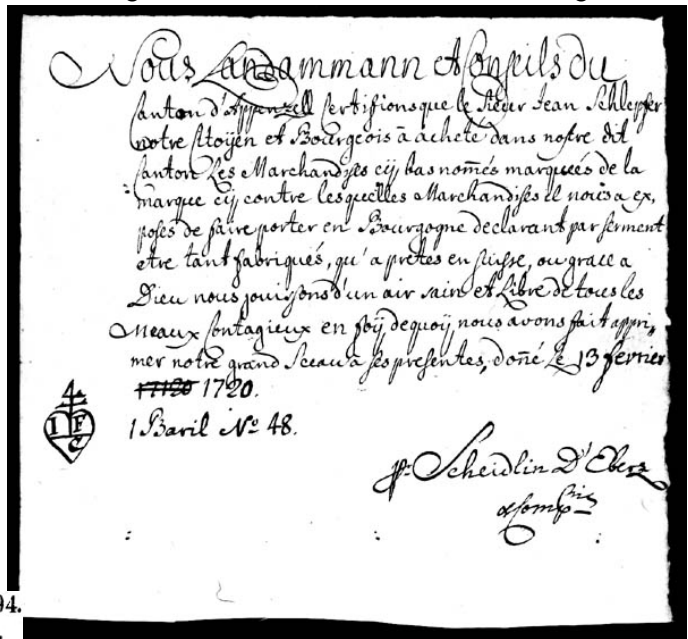 Nous Landammann et Conseils du
Canton d'Appenzell Certifions que le Sieur Jean Schlepfer
notre Citoyen et Bourgeois à acheté dans nostre dit
Canton Les Marchandises cÿ bas nomées marqueés de la
marque cÿ contre lesquelles Marchandises il nous a ex,
posés de faire porter en Bourgogne declarant par serment
etre tant fabriqués, qu'apretés en suisse, ou grace a
Dieu nous jouissons d'un air sain et Libre de tous les
Meaux Contagieux en foÿ dequoÿ nous avons fait appri,,
mer notre grand Sceau à ses presentes, doñé Le 13 fevrier
17120 1720.
4
I F
C
1 Baril Nº 48.
pr. Scheidlin D'Eberz
& Compnie
94.